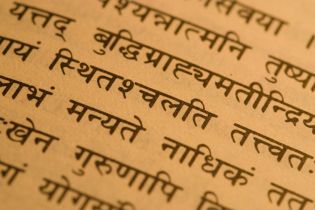 सेवया ।
श्यन्नात्मनि तुष्य
यत्तद् बुद्धिग्राह्यमतीन्द्रिय
स्थितश्चलति तत्त्वतः
लाभं मन्यते नाधिकं तत
गुरुणापि